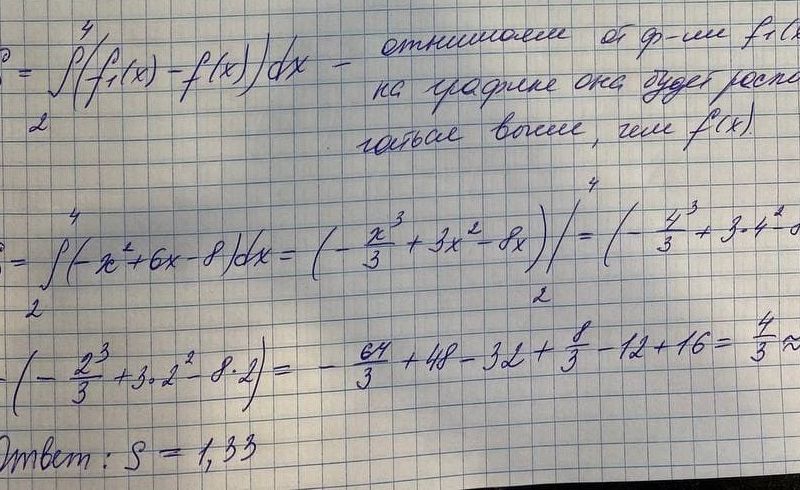 S = ∫₂⁴ (f₁(x) − f(x)) dx − отнимаем от ф-ии f₁(x
на графике она будет распо
гаться выше, чем f(x)
S = ∫₂⁴ (−x² + 6x − 8) dx = (− x³/3 + 3x² − 8x) |₂⁴ = (− 4³/3 + 3·4² − 8
− (− 2³/3 + 3·2² − 8·2) = − 64/3 + 48 − 32 + 8/3 − 12 + 16 = 4/3 ≈
Ответ: S = 1,33